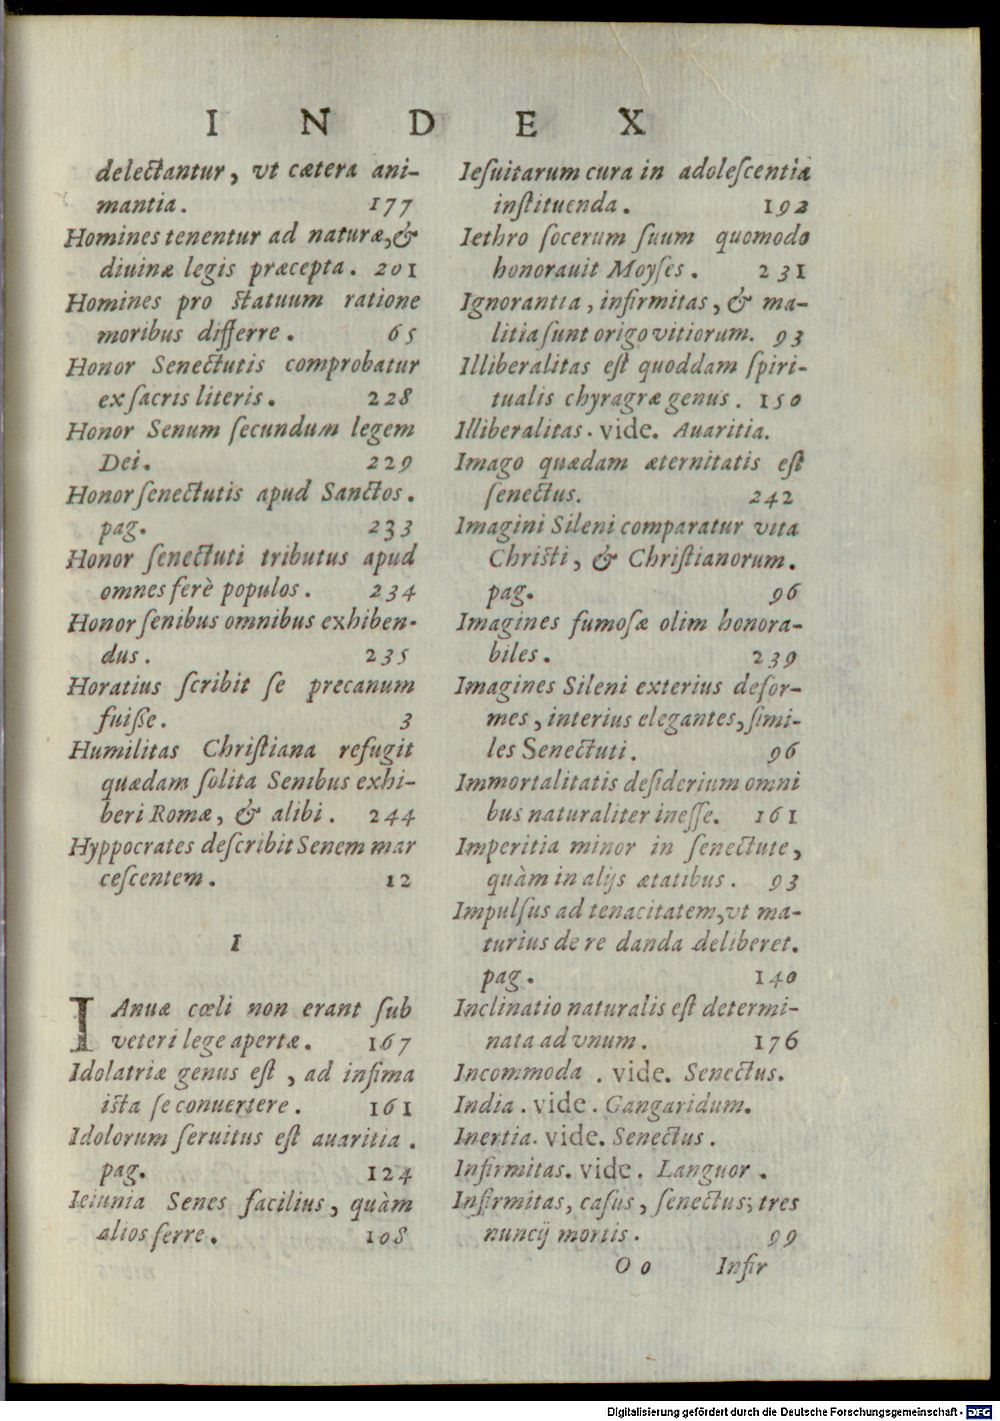 INDEX
delectantur, vt cætera ani-
mantia. 177
Homines tenentur ad naturæ, &
diuinæ legis præcepta. 201
Homines pro statuum ratione
moribus differre. 65
Honor Senectutis comprobatur
ex sacris literis. 228
Honor Senum secundum legem
Dei. 229
Honor senectutis apud Sanctos.
pag. 233
Honor senectuti tributus apud
omnes ferè populos. 234
Honor senibus omnibus exhiben-
dus. 235
Horatius scribit se precanum
fuiße. 3
Humilitas Christiana refugit
quædam solita Senibus exhi-
beri Romæ, & alibi. 244
Hyppocrates describit Senem mar
cescentem. 12
I
IAnuæ cœli non erant sub
veteri lege apertæ. 167
Idolatriæ genus est, ad infima
ista se conuertere. 161
Idolorum seruitus est auaritia.
pag. 124
Ieiunia Senes facilius, quàm
alios ferre. 108
Iesuitarum cura in adolescentia
instituenda. 192
Iethro socerum suum quomodo
honorauit Moyses. 231
Ignorantia, infirmitas, & ma-
litia sunt origo vitiorum. 93
Illiberalitas est quoddam spiri-
tualis chyragræ genus. 150
Illiberalitas. vide. Auaritia.
Imago quædam æternitatis est
senectus. 242
Imagini Sileni comparatur vita
Christi, & Christianorum.
pag. 96
Imagines fumosæ olim honora-
biles. 239
Imagines Sileni exterius defor-
mes, interius elegantes, simi-
les Senectuti. 96
Immortalitatis desiderium omni
bus naturaliter inesse. 161
Imperitia minor in senectute,
quàm in alijs ætatibus. 93
Impulsus ad tenacitatem, vt ma-
turius de re danda deliberet.
pag. 140
Inclinatio naturalis est determi-
nata ad vnum. 176
Incommoda. vide. Senectus.
India. vide. Gangaridum.
Inertia. vide. Senectus.
Infirmitas. vide. Languor.
Infirmitas, casus, senectus; tres
nuncij mortis. 99
Oo Infir
Digitalisierung gefördert durch die Deutsche Forschungsgemeinschaft - DFG